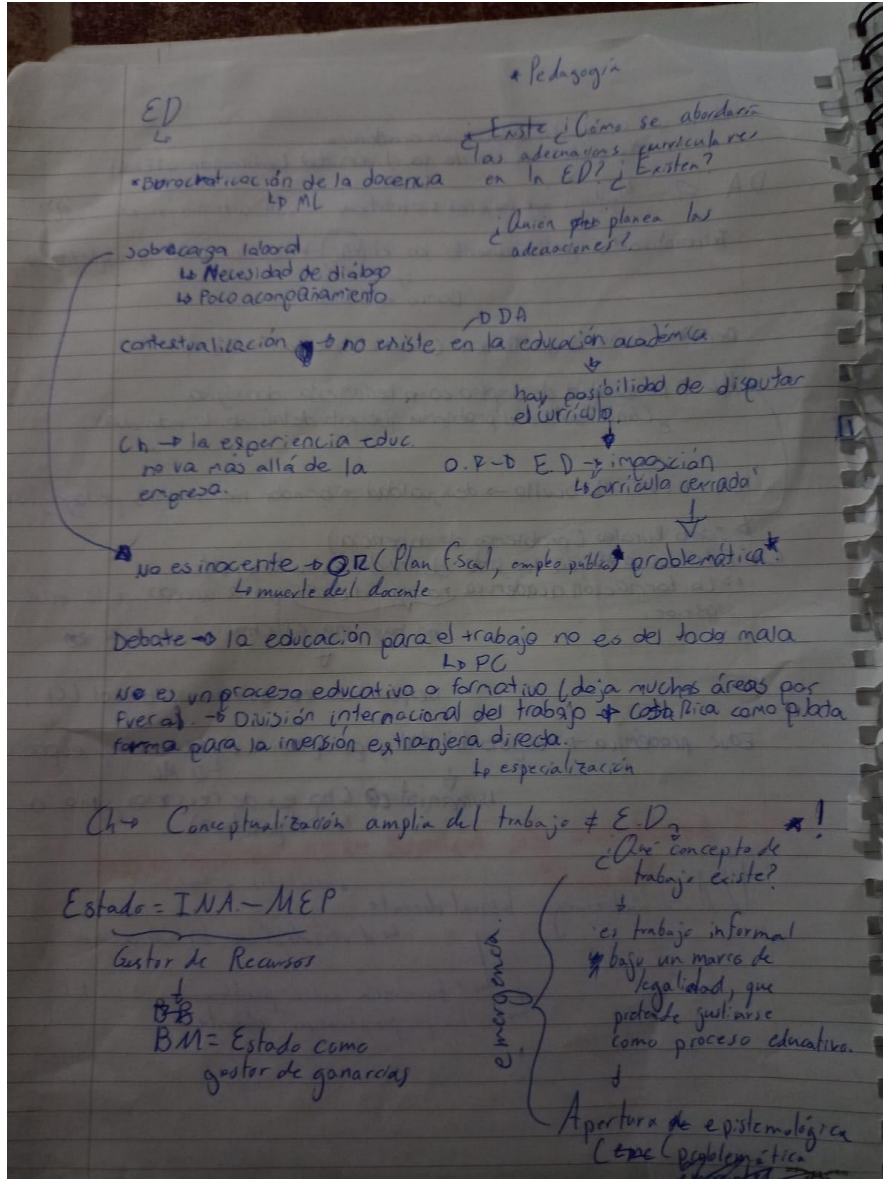 * Pedagogía
ED
↳
¿Existe ¿Cómo se abordaría
las adecuaciones curriculares
* Burocraticación de la docencia en la ED? ¿Existen?
↳ ML
¿Quien planea las
adecuaciones?
sobrecarga laboral
↳ Necesidad de diálogo
↳ Poco acompañamiento
→ DDA
contextualización → no existe en la educación académica
↓
hay posibilidad de disputar
el currículo
↓
Ch → la experiencia educ.
no va más allá de la
empresa.
O.R → E.D → imposición
↳ currícula cerrada
↓
No es inocente → OR (Plan fiscal, empleo publico) problemática*
↳ muerte del docente
Debate → la educación para el trabajo no es del todo mala
↳ PC
No es un proceso educativo o formativo (deja muchas áreas por
fuera). → División internacional del trabajo → Costa Rica como plata
forma para la inversión extranjera directa.
↳ especialización
Ch → Conceptualización amplia del trabajo ≠ E.D. * !
¿Qué concepto de
trabajo existe?
↓
es trabajo informal
bajo un marco de
legalidad, que
pretende
como proceso educativo.
↓
Apertura epistemológica
(problemática
emergencia.
Estado = INA - MEP
Gestor de Recursos
↓
BM = Estado como
gestor de ganancias